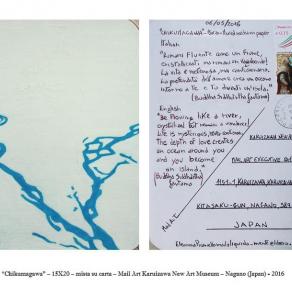 06/05/2016
"CHIKUMAGAWA"
Italian
"Rimani Fluente come un fiume,
cristallizzati ma rimani un vagabondo!
La vita è misteriosa, mai confezionata.
La profondità dell'amore crea un oceano
intorno a te e tu diventi un'isola."
(Buddha Siddhartha Gautama)
English
"Be flowing like a river,
crystallized but remain a vagabond!
Life is mysterious,
The depth of love creates
an ocean around you
and you become
an island."
(Buddha Siddhartha
Gautama)
KARUIZAWA NEW
MAIL ART EXECUTIVE
1151-1 KARUIZAWA, KARUIZAWA
KITASAKU-GUN, NAGANO, 389
JAPAN
ITALIA
"Chikumagawa" – 15X20 – mista su carta – Mail Art Karuizawa New Art Museum – Nagano (Japan) - 2016